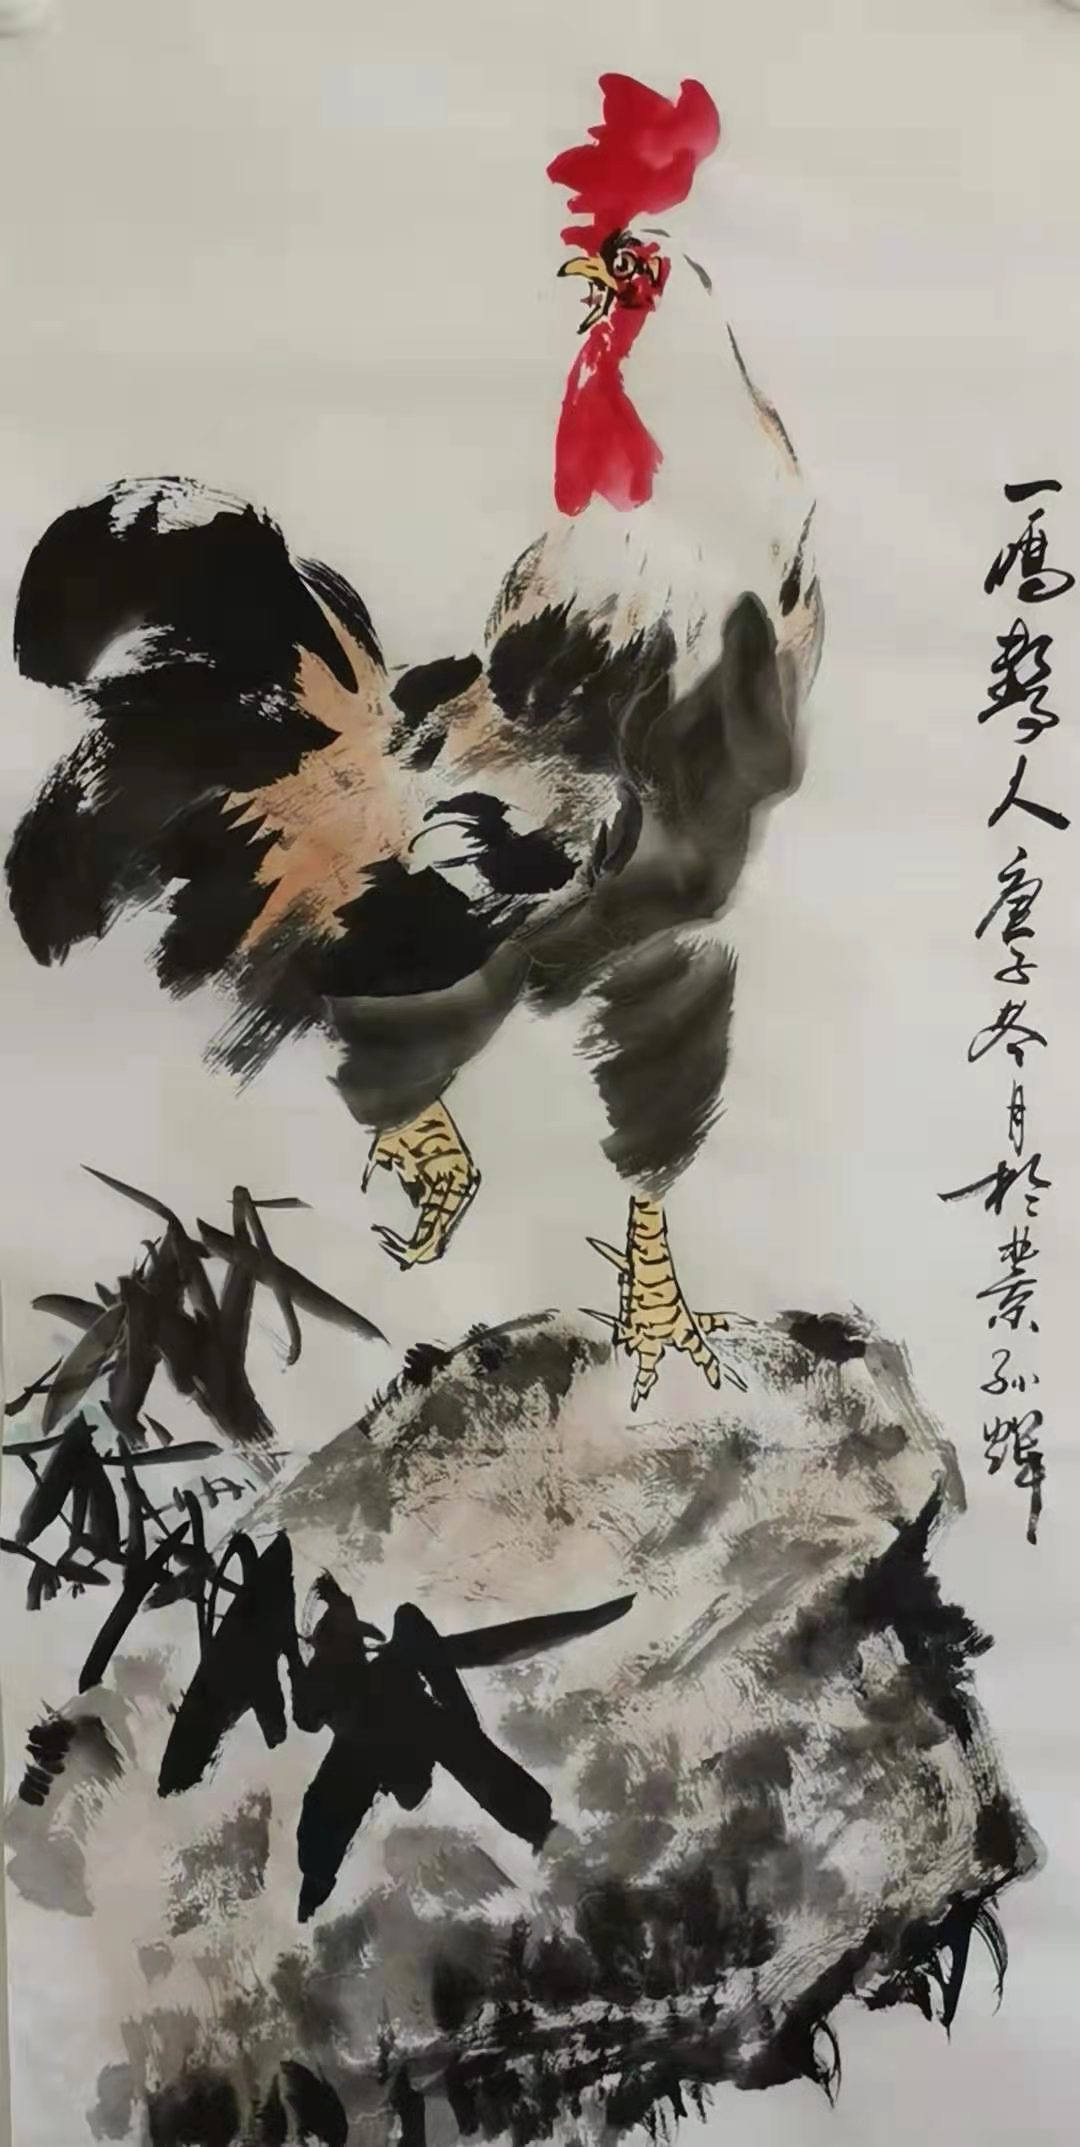 一鸣惊人庚子冬月於北京孙辉